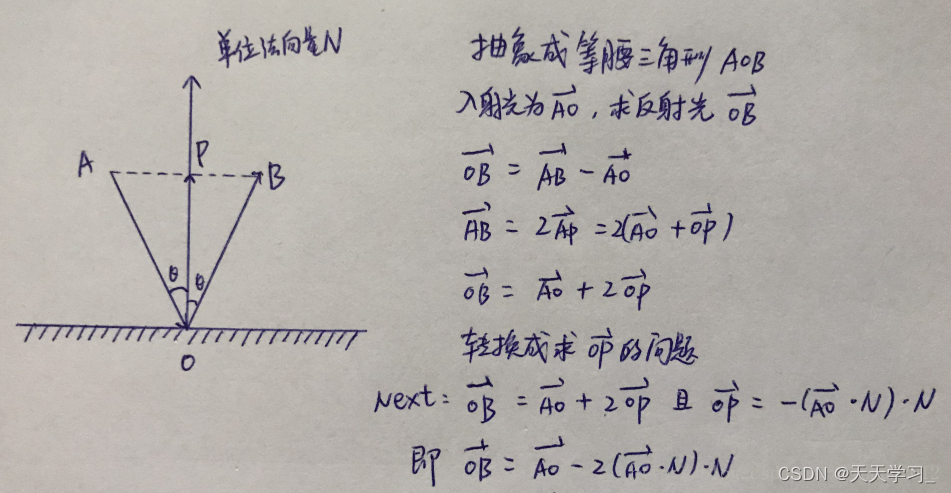 单位法向量N
A
P
B
θ
θ
O
抽象成等腰三角形AOB
入射光为AO，求反射光OB
OB = AB - AO
AB = 2AP = 2(AO + OP)
OB = AO + 2OP
转换成求OP的问题
Next: OB = AO + 2OP 且 OP = -(AO·N)·N
即 OB = AO - 2(AO·N)·N
CSDN @天天学习_